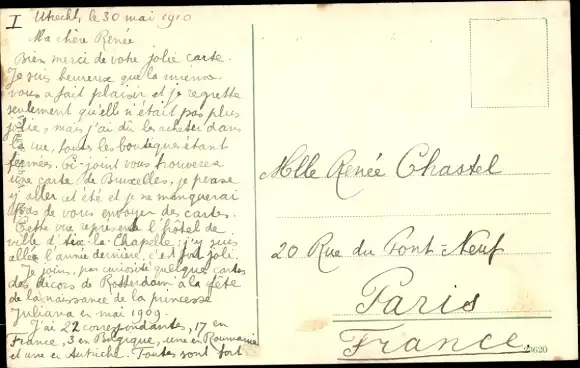 I
Utrecht, le 30 mai 1910
Ma chère Renée
Bien merci de votre jolie carte.
Je suis heureux que la mienne
vous a fait plaisir et je regrette
seulement qu'elle n'était pas plus
jolie, mais j'ai dû les acheter dans
la rue, toutes les boutiques étant
fermées. Ci-joint vous trouverez
une carte de Bruxelles, je pense
y aller cet été et je ne manquerai
pas de vous envoyer des cartes.
Cette vue représente l'hôtel de
ville d'Aix-la-Chapelle; j'y suis
allé l'année dernière, c'est fort joli.
Je joins, par curiosité quelques cartes
des décors de Rotterdam à la fête
de la naissance de la princesse
Juliana en mai 1909.
J'ai 22 correspondantes, 17 en
France, 3 en Belgique, une en Roumanie
et une en Autriche. Toutes sont fort
Mlle Renée Chastel
20 Rue du Pont-Neuf
Paris
France